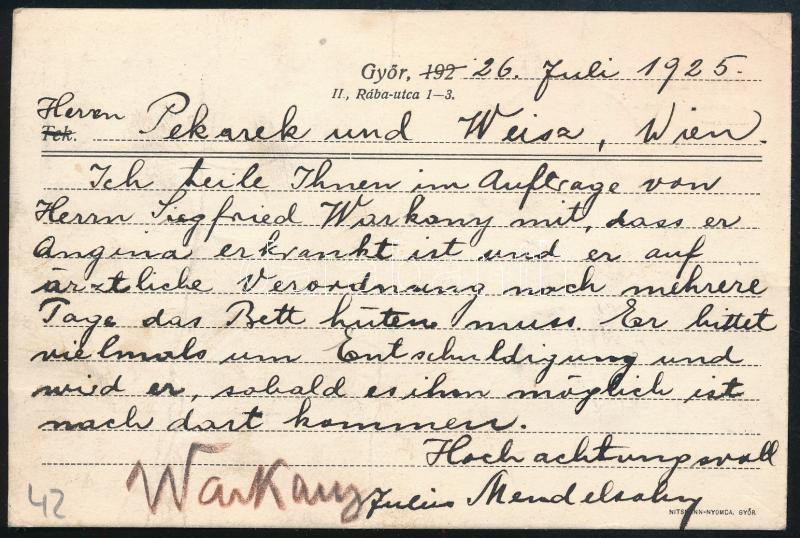 Győr, 192 26. Juli 1925.
II., Rába-utca 1–3.
Herrn
Tek. Pekarek und Weisz, Wien.
Ich teile Ihnen im Auftrage von
Herrn Siegfried Warkany mit, dass er
Angina erkrankt ist und er auf
ärztliche Verordnung noch mehrere
Tage das Bett hüten muss. Er bittet
vielmals um Entschuldigung und
wird er, sobald es ihm möglich ist
nach dort kommen.
Hochachtungsvoll
Warkany Julius Mendelsohn
42
NITSMANN-NYOMDA, GYŐR